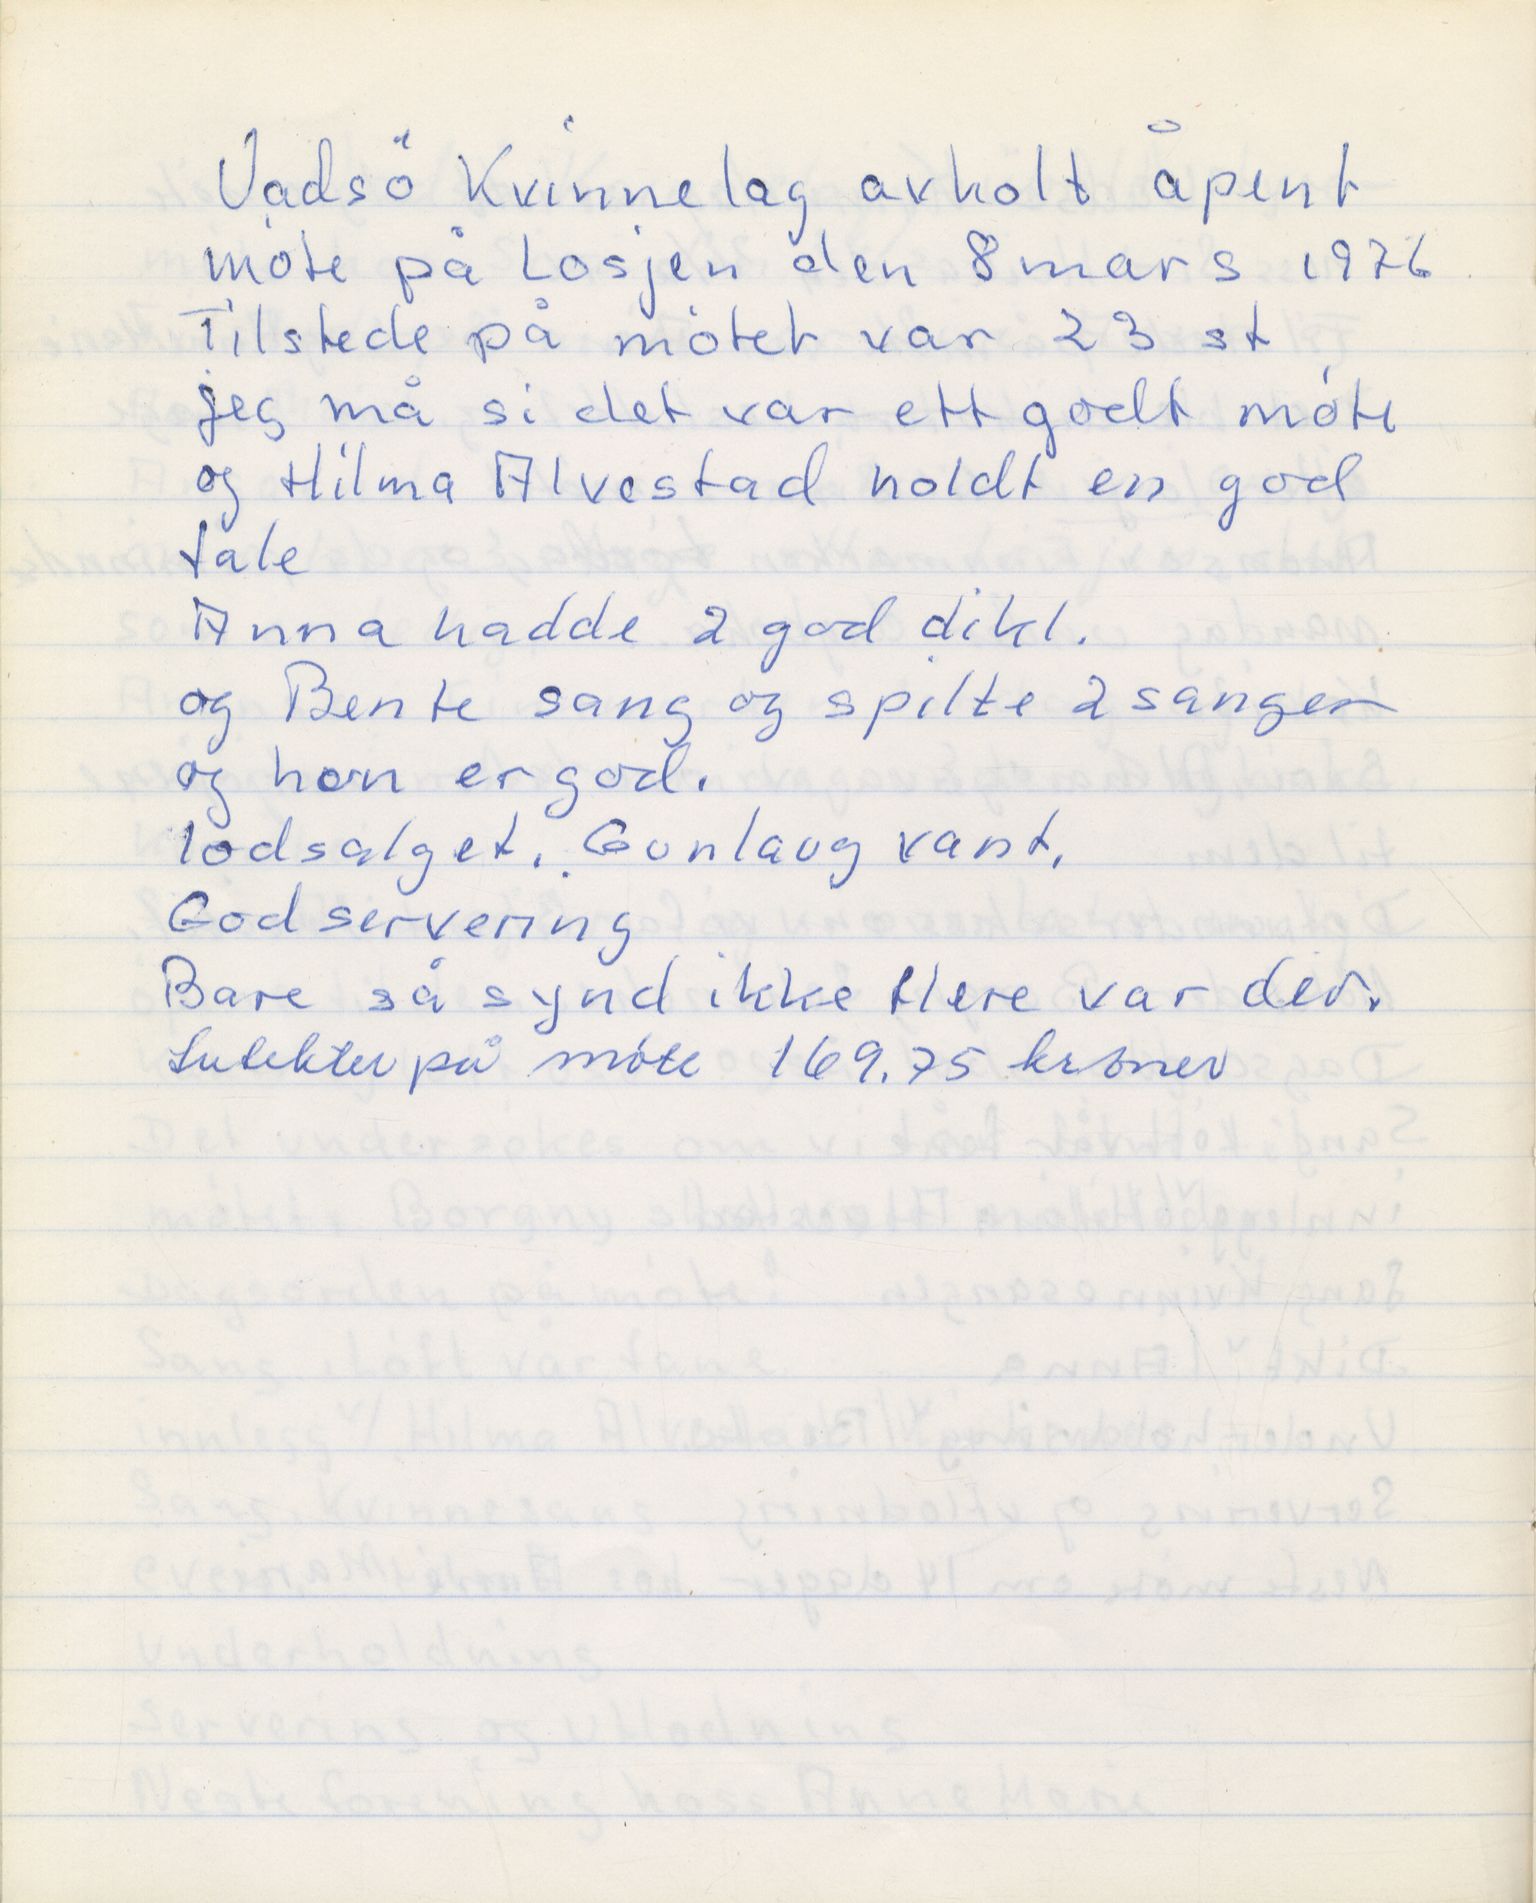 Vadsö Kvinnelag avholt åpent
móte på Losjen den 8 mars 1976
Tilstede på mótet var 23 st
jeg må si det var ett godt móte
og Hilma Alvestad holdt en god
tale
Anna hadde 2 god dikt.
og Bente sang og spilte 2 sanger
og hon er god.
lodsalget. Gunlaug vant.
God servering
Bare så synd ikke flere var der.
Intekter på móte 169.75 kroner